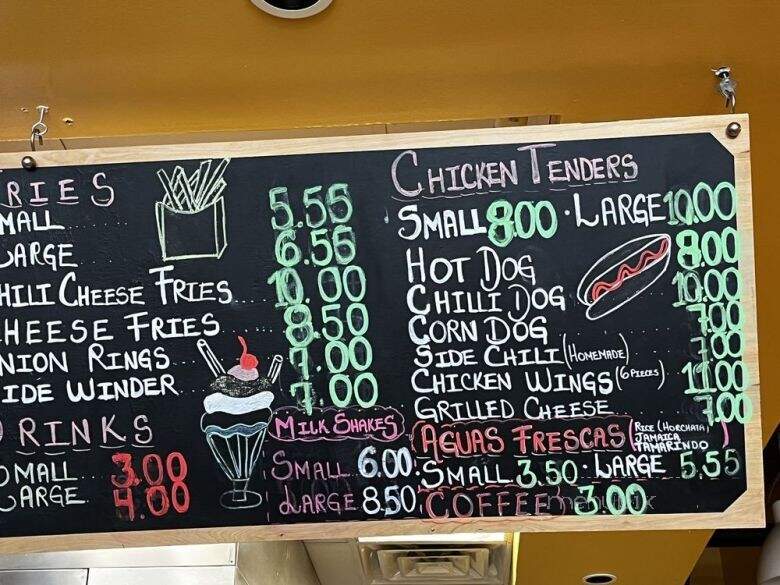 RIES
MALL 5.55
ARGE 6.56
HILI CHEESE FRIES 10.00
HEESE FRIES 8.50
NION RINGS 7.00
IDE WINDER 7.00
RINKS
MALL 3.00
ARGE 4.00
MILK SHAKES
SMALL 6.00
LARGE 8.50
CHICKEN TENDERS
SMALL 8.00 · LARGE 10.00
HOT DOG 8.00
CHILLI DOG 10.00
CORN DOG 7.00
SIDE CHILI (HOMEMADE) .00
CHICKEN WINGS (6 PIECES) 11.00
GRILLED CHEESE 7.00
AGUAS FRESCAS (RICE (HORCHATA)
JAMAICA
TAMARINDO)
SMALL 3.50 · LARGE 5.55
COFFEE 3.00